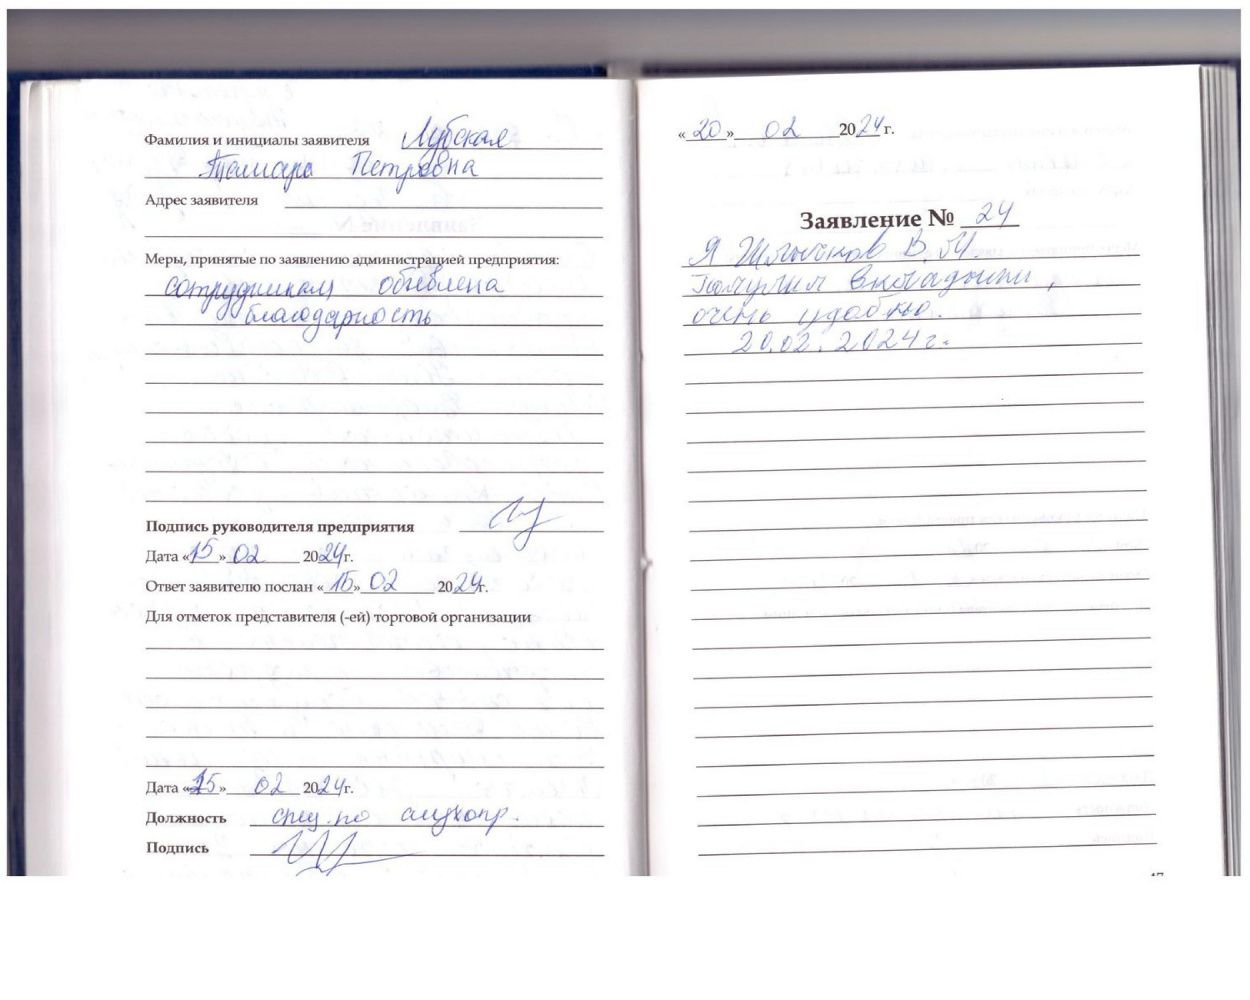 Фамилия и инициалы заявителя Лубская
Тамара Петровна
Адрес заявителя
Меры, принятые по заявлению администрацией предприятия:
сотрудникам объявлена
благодарность
Подпись руководителя предприятия
Дата «15» 02 2024г.
Ответ заявителю послан «15» 02 2024г.
Для отметок представителя (-ей) торговой организации
Дата «15» 02 2024г.
Должность спец. по слухопр.
Подпись
«20» 02 2024 г.
Заявление № 24
Я В. М.
Получил вкладыши,
очень удобно.
20.02.2024г.